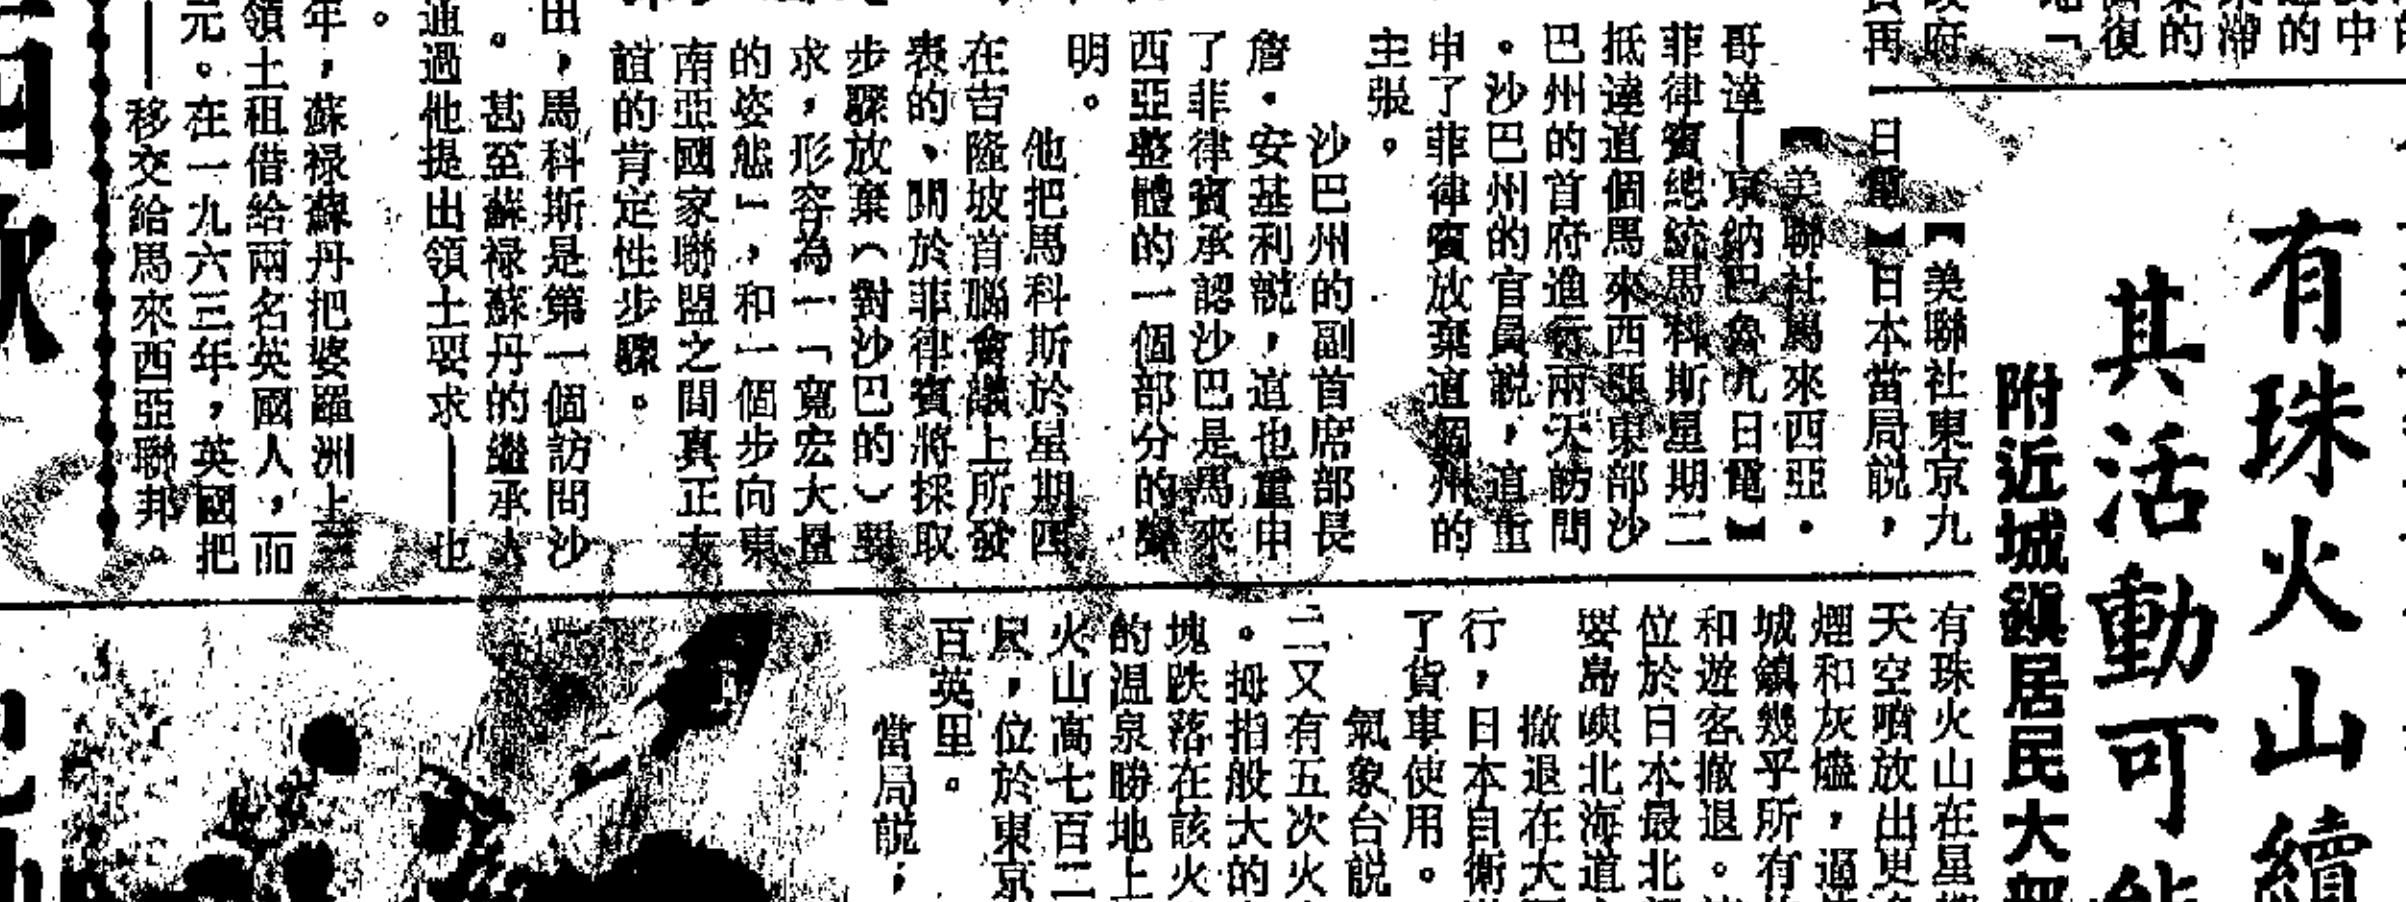 有珠火山續
其活動可能
附近城鎮居民大部
【美聯社東京九
日電】日本當局説，
有珠火山在星
天空噴放出更
煙和灰燼，
城鎮幾乎所有
和遊客撤退。
位於日本最北
要島嶼北海道
撤退在大
行，日本自衛
了貨車使用。
氣象台説
二又有五次火
。拇指般大的
塊跌落在該火
的温泉勝地上
火山高七百二
尺，位於東京
百英里。
當局説，
【美聯社馬來西亞·
哥達—京納巴魯九日電】
菲律賓總統馬科斯星期二
抵達這個馬來西亞東部沙
巴州的首府進行兩天訪問
。沙巴州的官員説，這重
申了菲律賓放棄這個州的
主張。
沙巴州的副首席部長
詹·安基利説，這也重申
了菲律賓承認沙巴是馬來
西亞整體的一個部分的聲
明。
他把馬科斯於星期四
在吉隆坡首腦會議上所發
表的、關於菲律賓將採取
步驟放棄（對沙巴的）要
求，形容為一「寬宏大量
的姿態」，和一個步向東
南亞國家聯盟之間真正友
誼的肯定性步驟。
田，馬科斯是第一個訪問沙
。甚至蘇祿蘇丹的繼承人
通過他提出領土要求——也
。
年，蘇祿蘇丹把婆羅洲上
領土租借給兩名英國人，而
元。在一九六三年，英國把
——移交給馬來西亞聯邦。